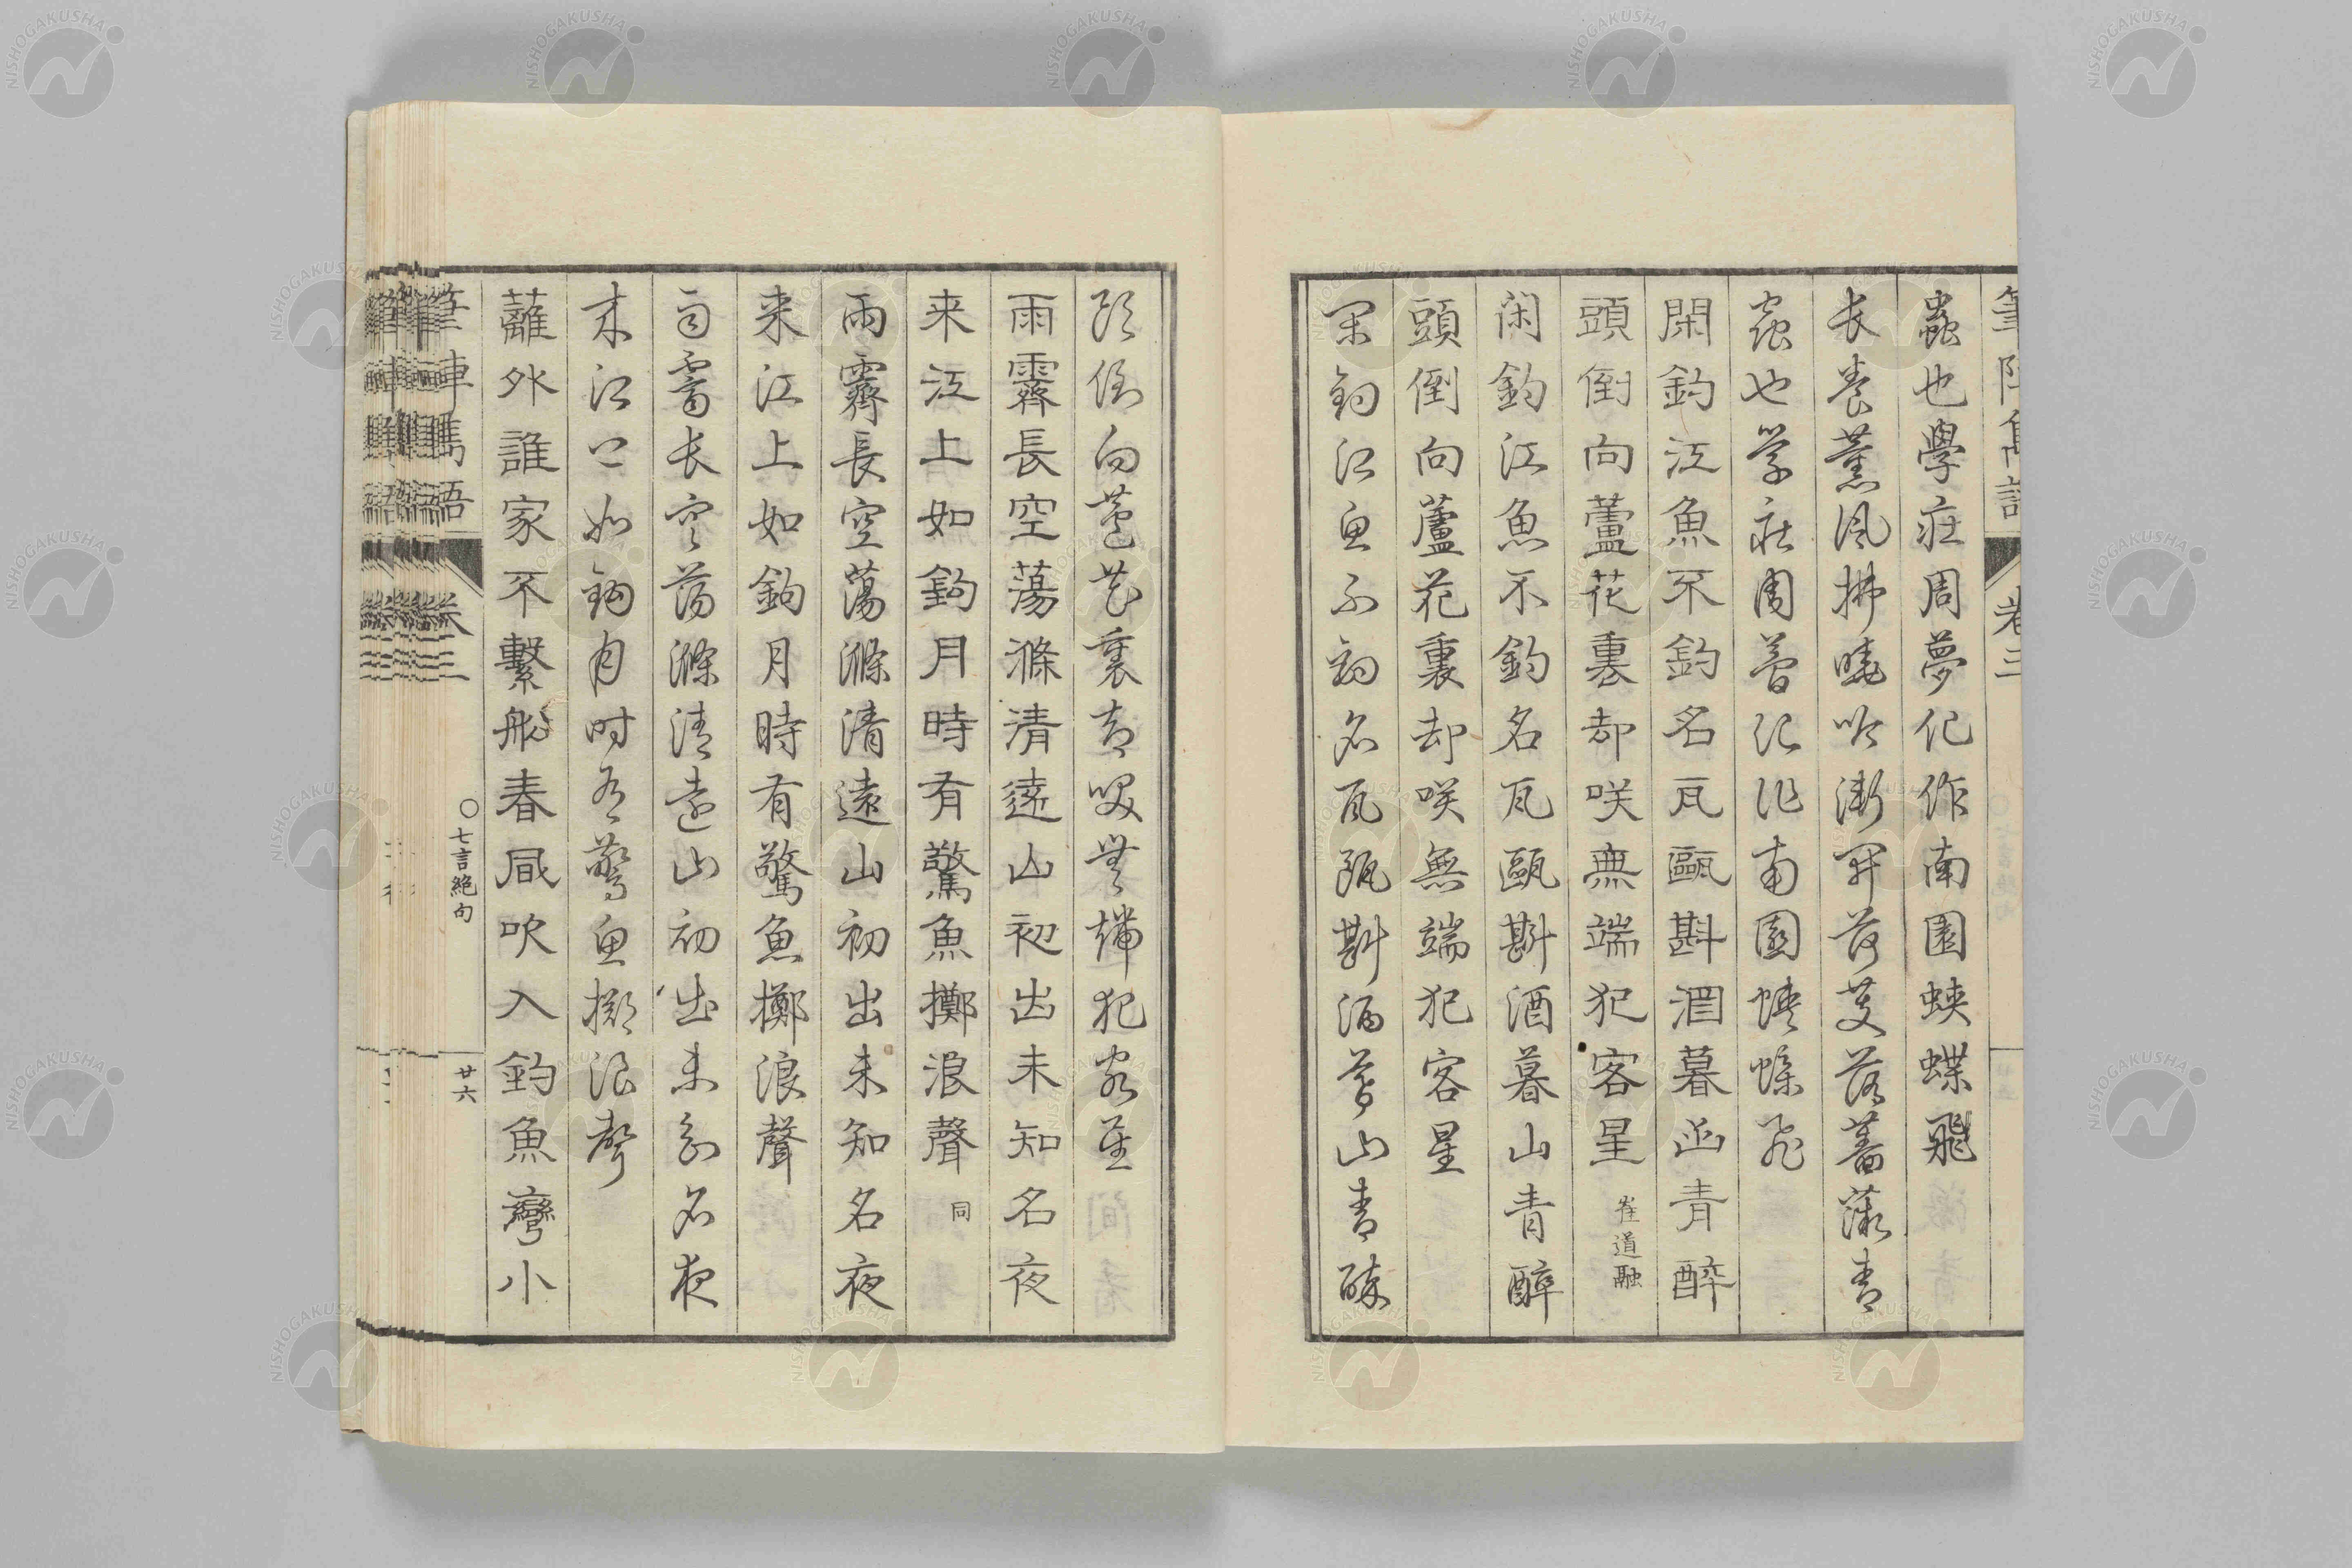 筆陣雋語 卷三
蟲也學莊周夢化作南園蛺蝶飛
長養薫風拂曉吹漸開荷芰落薔薇青
蟲也学荘周夢化作南園蛺蝶飛
閑釣江魚不釣名瓦甌斟酒暮山青醉
頭倒向蘆花裏却咲無端犯客星 崔道融
閑釣江魚不釣名瓦甌斟酒暮山青醉
頭倒向蘆花裏却咲無端犯客星
閑釣江魚不釣名瓦甌斟酒暮山青醉
頭倒向蘆花裏却咲無端犯客星
雨霽長空蕩滌清遠山初出未知名夜
来江上如鈎月時有驚魚擲浪聲 同
雨霽長空蕩滌清遠山初出未知名夜
来江上如鈎月時有驚魚擲浪聲
雨霽長空蕩滌清遠山初出未知名夜
来江上如鈎月时有驚魚擲浪聲
蘺外誰家不繫船春風吹入釣魚灣小
筆陣雋語 卷三 〇七言絶句 廿六
NISHOGAKUSHA